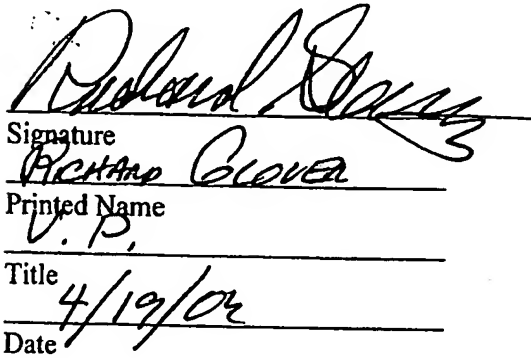 Richard
Signature
RICHARD GLOVER
Printed Name
V. P.
Title
4/19/02
Date